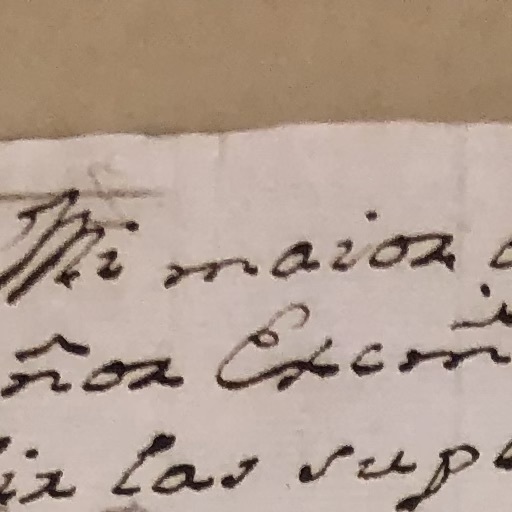 Mi maior
ñor Excm
ir las sup